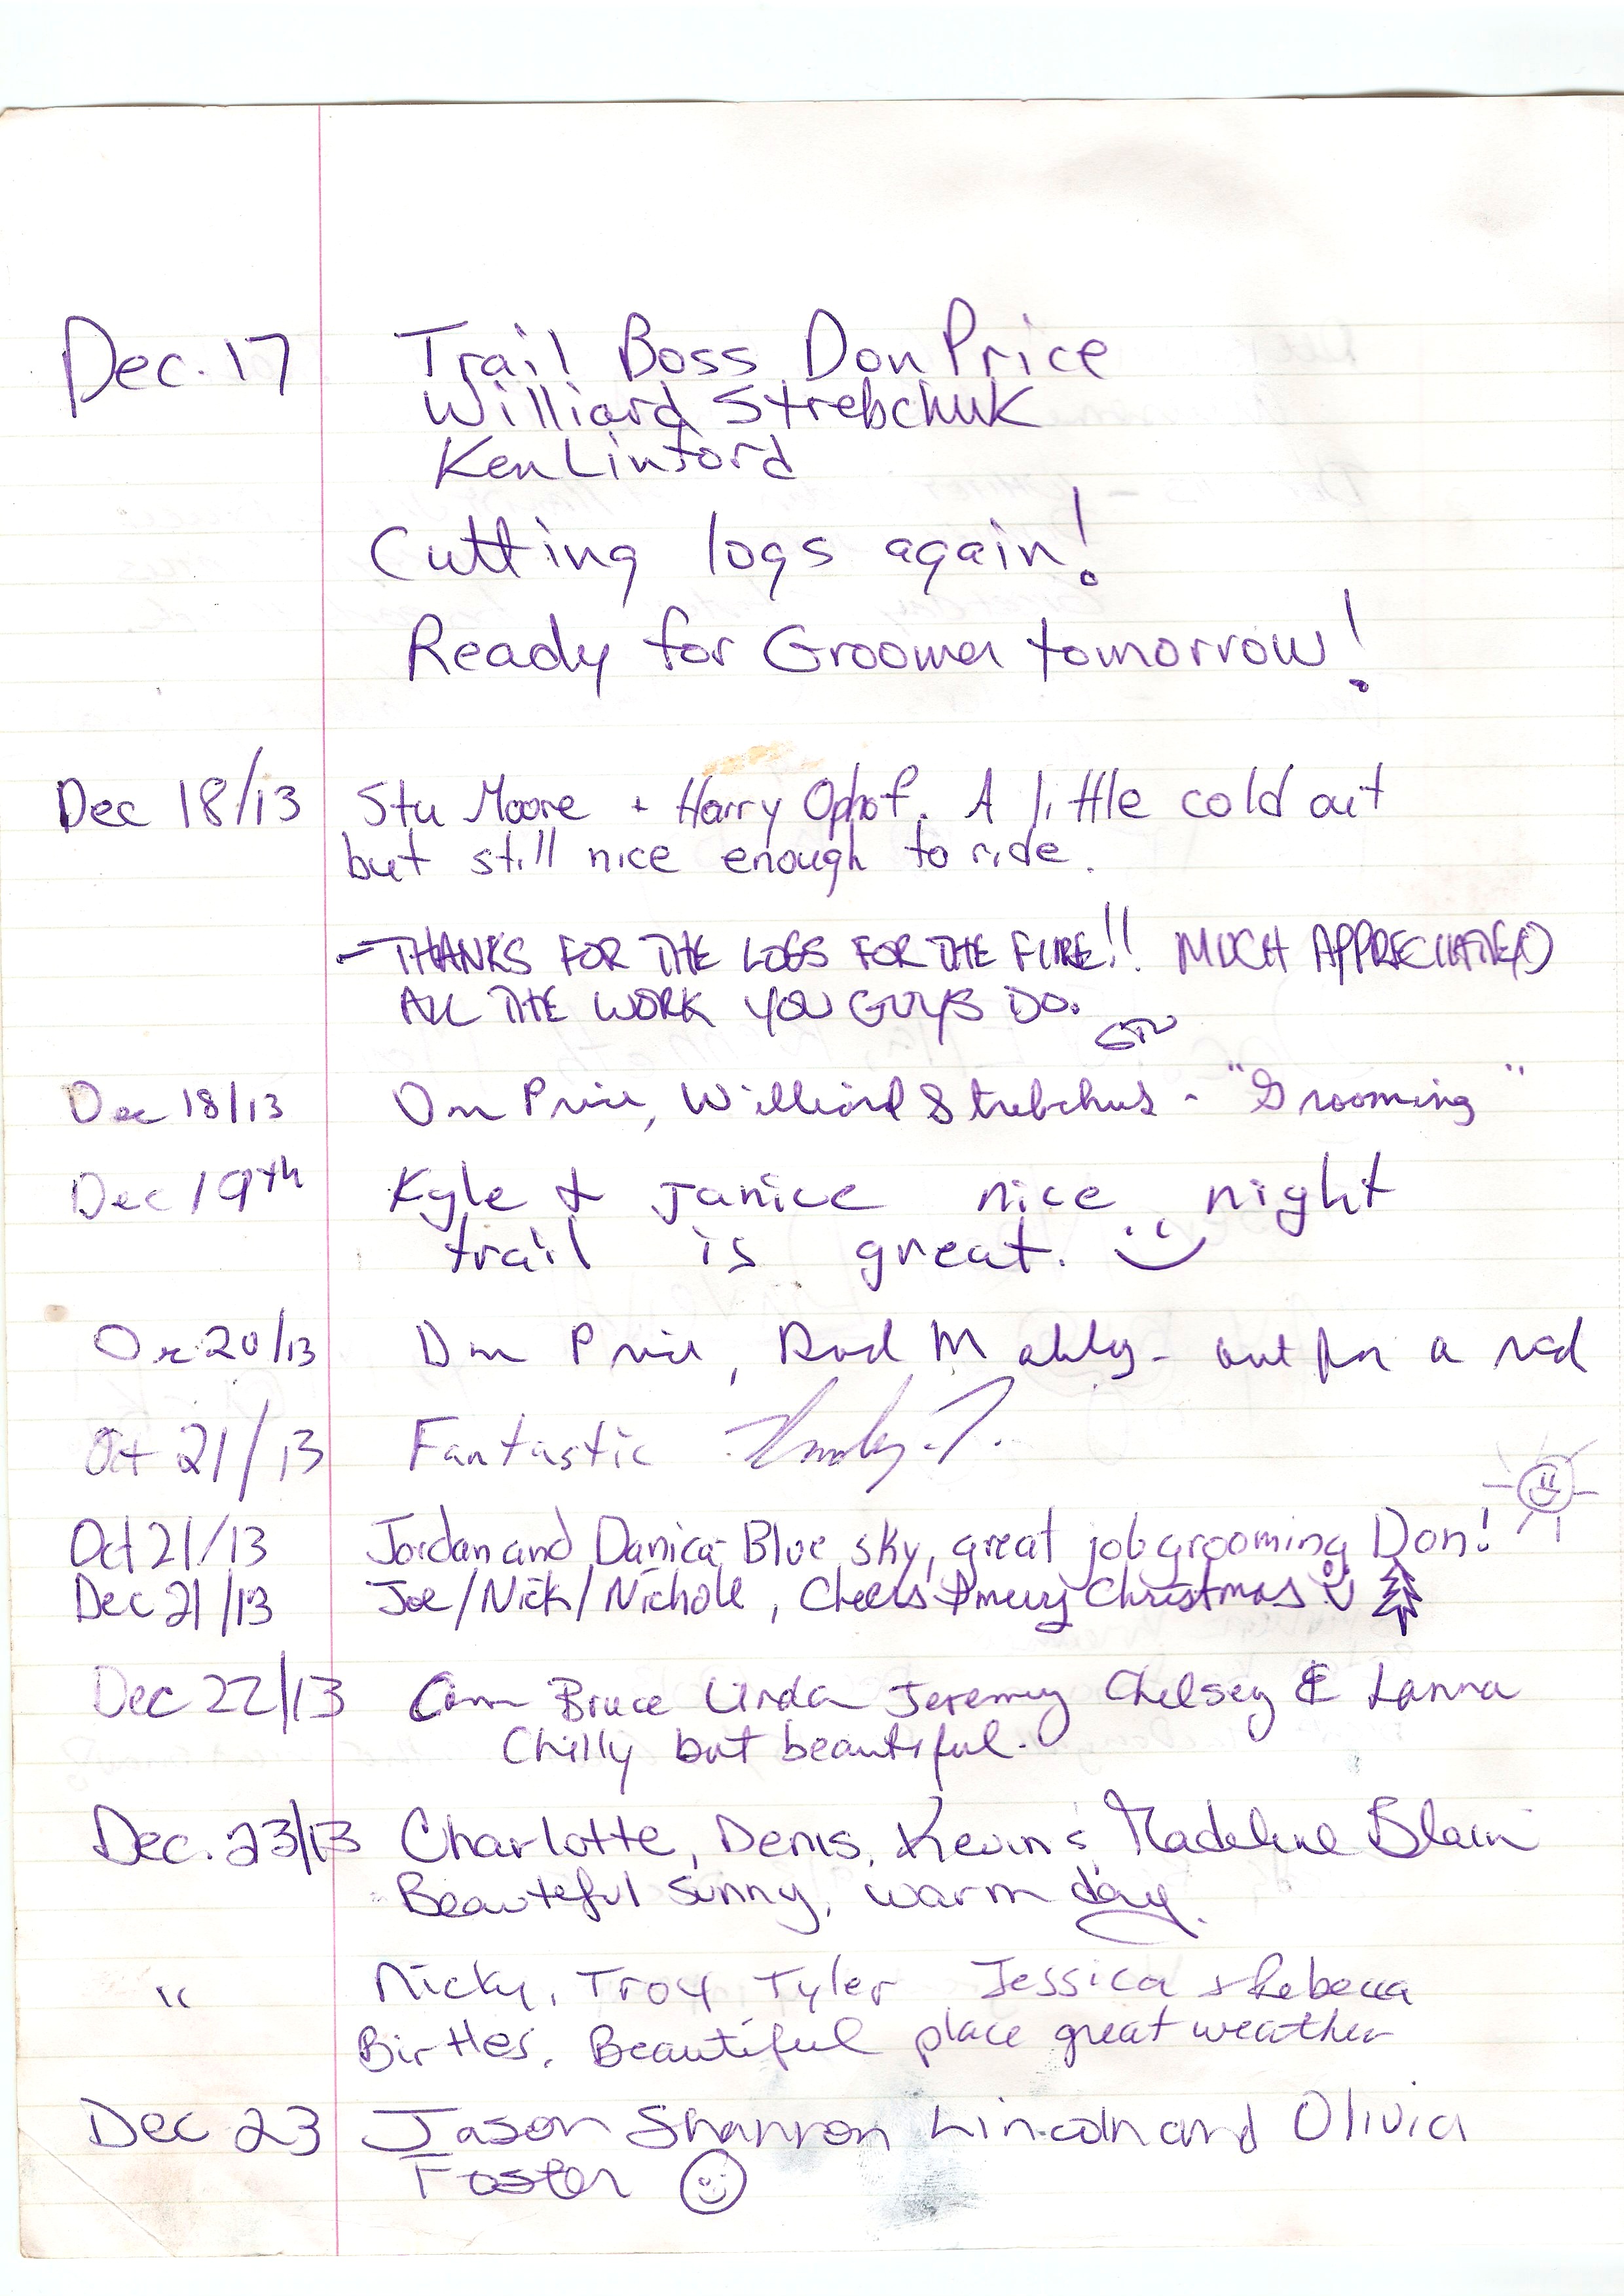 Dec. 17 Trail Boss Don Price
Williard Strebchuk
Ken Linford
Cutting logs again!
Ready for Groomer tomorrow!
Dec 18/13 Stu Moore + Harry Ophof. A little cold out
but still nice enough to ride.
- THANKS FOR THE LOGS FOR THE FIRE!! MUCH APPRECIATED
ALL THE WORK YOU GUYS DO.
STU
Dec 18/13 Don Price, Williard Strebchuk - "Grooming"
Dec 19th Kyle & Janice nice night
trail is great.
Dec 20/13 Don Price, Rod - out for a
Oct 21/13 Fantastic
Oct 21/13 Jordan and Danica- Blue sky, great job grooming Don!
Dec 21/13 Joe/Nick/Nichole, Cheers & merry Christmas
Dec 22/13 Cam Bruce Linda Jeremy Chelsey & Lanna
Chilly but beautiful.
Dec. 23/13 Charlotte, Denis, Kevin & Madeline Blain
Beauteful sunny, warm day.
" Nicky, Troy Tyler Jessica & Rebecca
Birtles. Beautiful place great weather
Dec 23 Jason Shannon Lincoln and Olivia
Foster